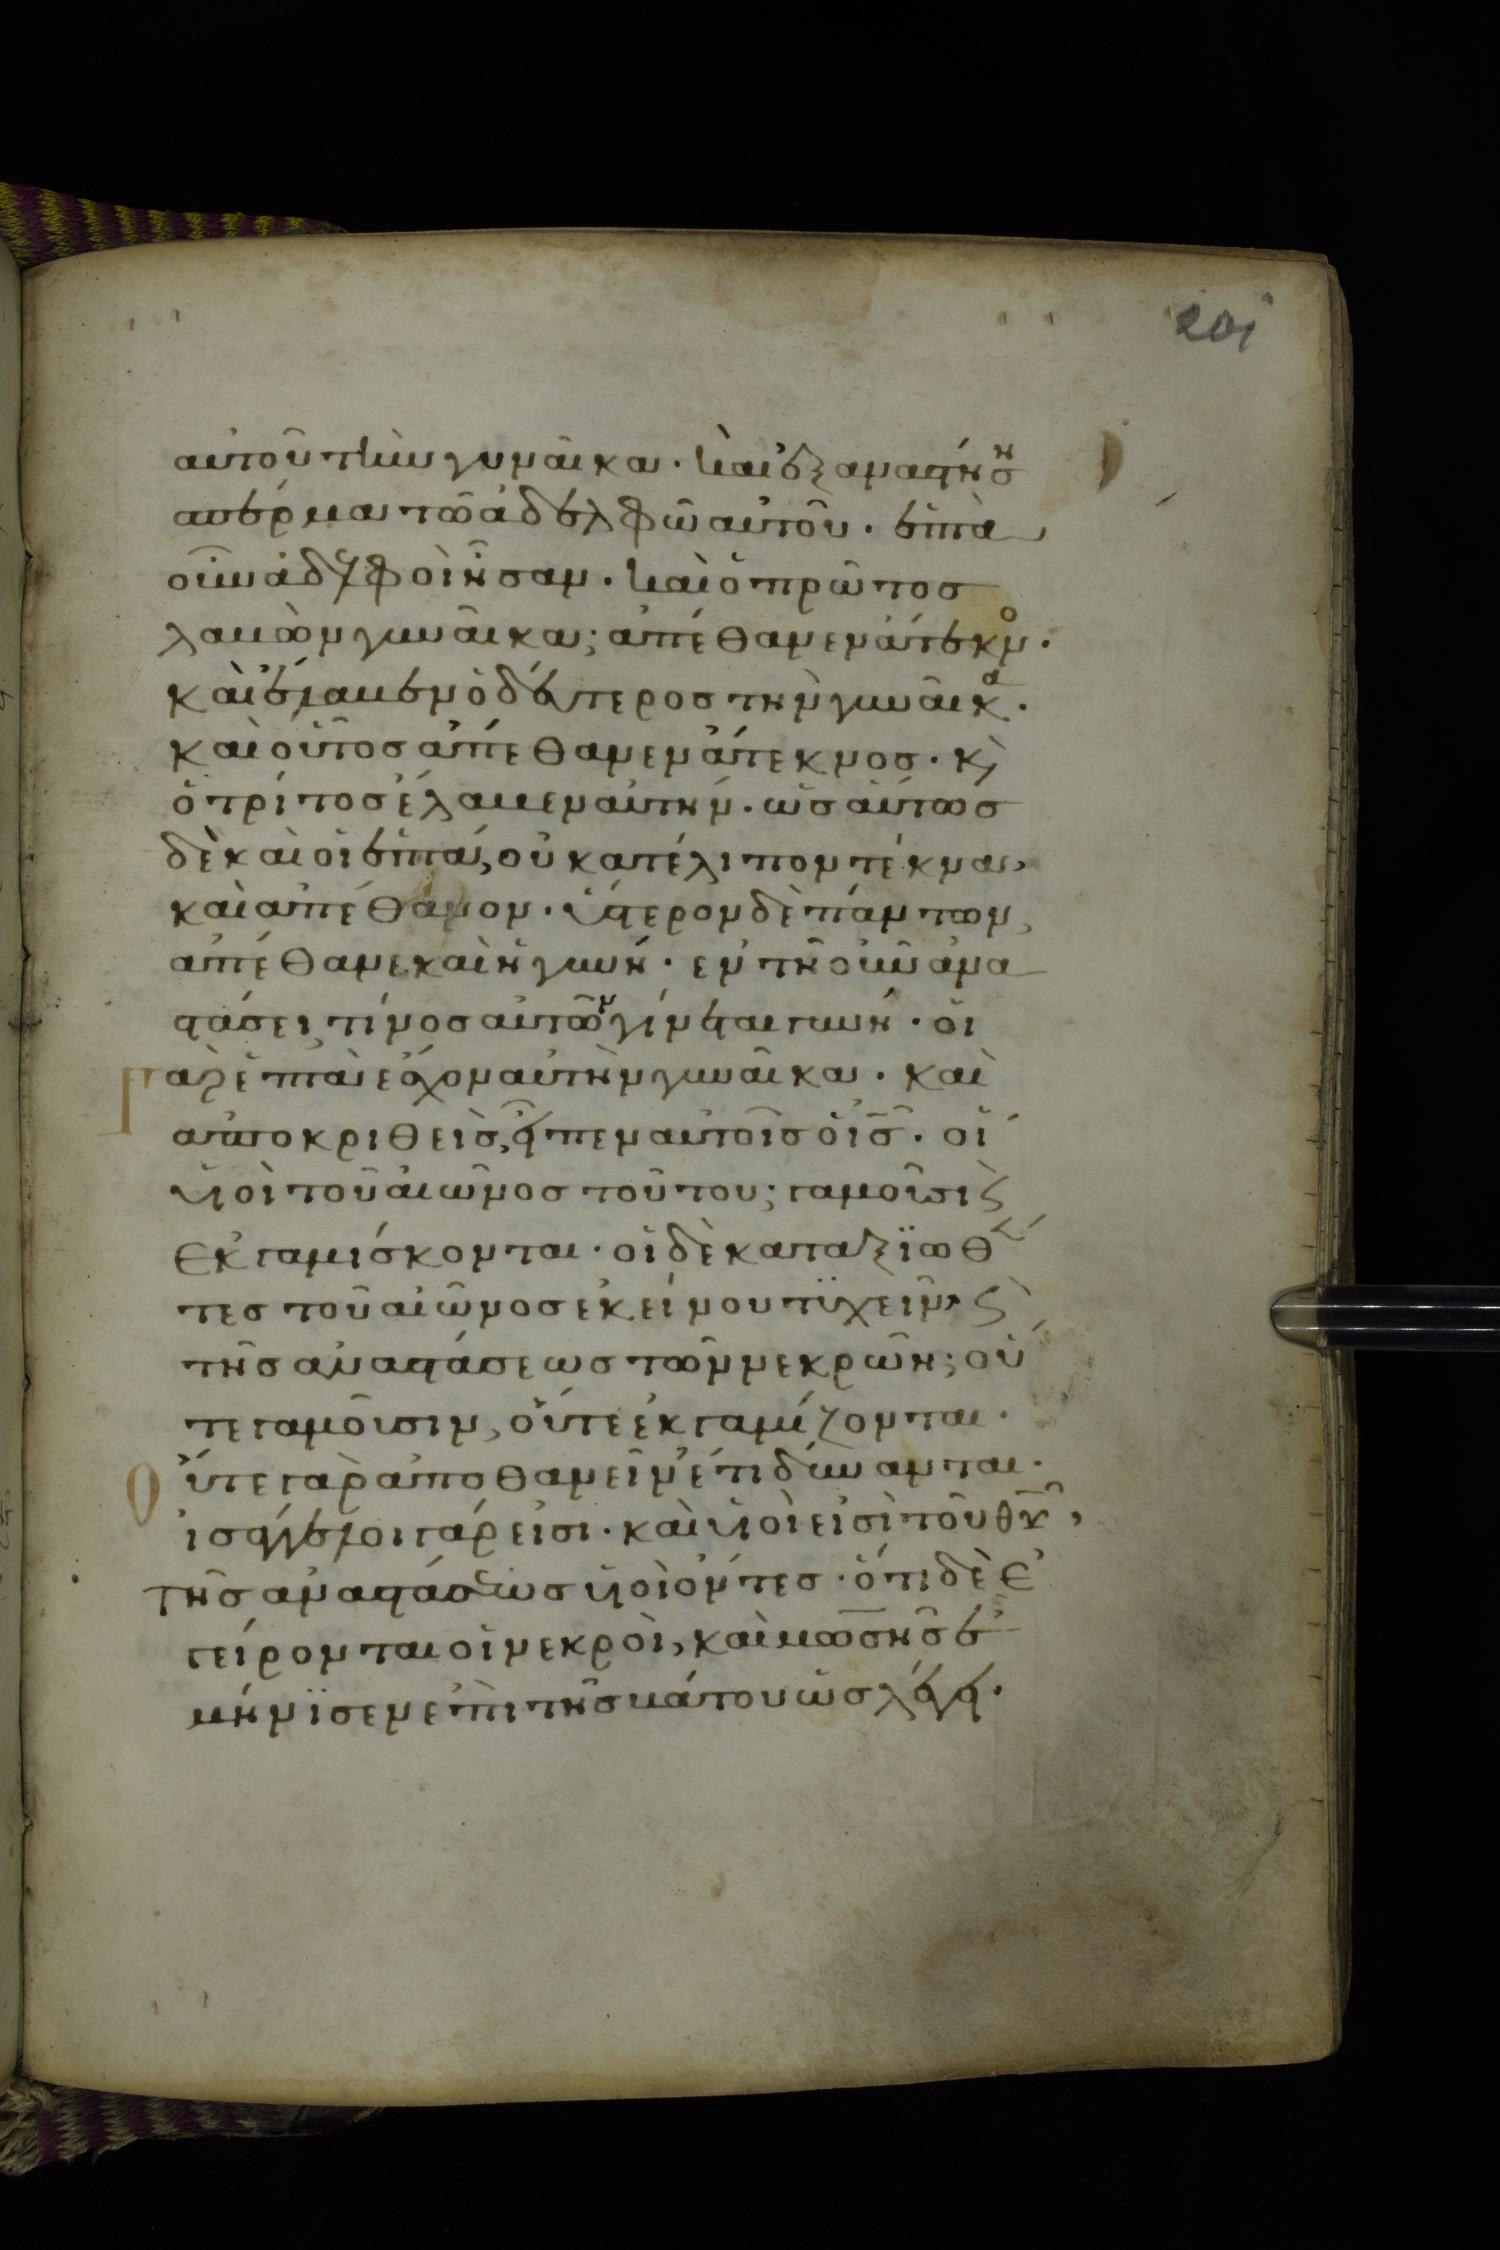 201
αὐτοῦ τὴν γυναῖκα· καὶ ἐξαναστήση
σπέρμα τῶ ἀδελφῶ αὐτοῦ· ἑπτὰ
οὖν ἀδελφοὶ ἦσαν· καὶ ὁ πρῶτος
λαβὼν γυναῖκα; ἀπέθανεν ἄτεκνο·
καὶ ἔλαβεν ὁ δεύτερος τὴν γυναῖκα·
καὶ οὗτος ἀπέθανεν ἄτεκνος· κ̀
ὁ τρίτος ἔλαβεν αὐτήν· ὡσαύτως
δὲ καὶ οἱ ἑπτά, οὐ κατέλιπον τέκνα,
καὶ ἀπέθανον· ὕστερον δὲ πάντων,
ἀπέθανε καὶ ἡ γυνή· ἐν τῆ οὖν ἀνα
στάσει, τίνος αὐτῶν γίνεται γυνή· οἱ
γὰρ ἑπτὰ ἔσχον αὐτὴν γυναῖκα· καὶ
ἀποκριθεὶς, εἶπεν αὐτοῖς ὁ ις̄· οἱ
υἱοὶ τοῦ αἰῶνος τούτου; γαμοῦσι ϛ̀
ἐκγαμίσκονται· οἱ δὲ καταξϊωθέν
τες τοῦ αἰῶνος ἐκείνου τϋχεῖν, ϛ̀
τῆς ἀναστάσεως τῶν νεκρῶν; οὔ
τε γαμοῦσιν, οὔτε ἐκγαμίζονται·
Οὔτε γὰρ ἀποθανεῖν ἔτι δύνανται·
ἰσάγγελοι γάρ εἰσι· καὶ υἱοί εἰσὶ τοῦ θῡ,
τῆς ἀναστάσεως υἱοὶ ὄντες· ὅτι δὲ ἐ
γείρονται οἱ νεκροὶ, καὶ μωσῆς ἐ
μήνϊσεν ἐπὶ τῆς βάτου ὡς λέγει·